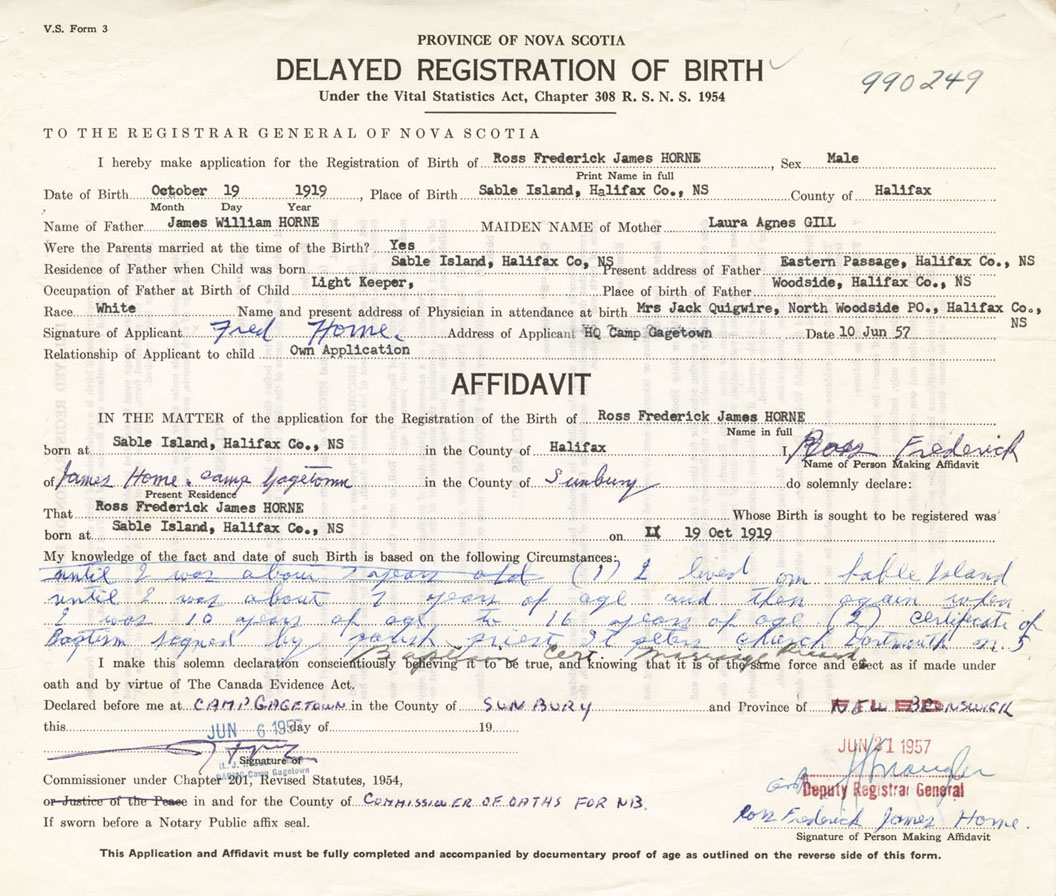 V.S. Form 3
PROVINCE OF NOVA SCOTIA
DELAYED REGISTRATION OF BIRTH
990249
Under the Vital Statistics Act, Chapter 308 R. S. N. S. 1954
TO THE REGISTRAR GENERAL OF NOVA SCOTIA
I hereby make application for the Registration of Birth of Ross Frederick James HORNE, Sex Male
Print Name in full
Date of Birth October 19 1919, Place of Birth Sable Island, Halifax Co., NS County of Halifax
Month Day Year
Name of Father James William HORNE MAIDEN NAME of Mother Laura Agnes GILL
Were the Parents married at the time of the Birth? Yes
Residence of Father when Child was born Sable Island, Halifax Co, NS Present address of Father Eastern Passage, Halifax Co., NS
Occupation of Father at Birth of Child Light Keeper, Place of birth of Father Woodside, Halifax Co., NS
Race White Name and present address of Physician in attendance at birth Mrs Jack Quigwire, North Woodside PO., Halifax Co., NS
Signature of Applicant Fred Horne. Address of Applicant HQ Camp Gagetown Date 10 Jun 57
Relationship of Applicant to child Own Application
AFFIDAVIT
IN THE MATTER of the application for the Registration of the Birth of Ross Frederick James HORNE
Name in full
born at Sable Island, Halifax Co., NS in the County of Halifax I Ross Frederick
Name of Person Making Affidavit
of James Horne. Camp Gagetown in the County of Sunbury do solemnly declare:
Present Residence
That Ross Frederick James HORNE Whose Birth is sought to be registered was
born at Sable Island, Halifax Co., NS on 19 Oct 1919
My knowledge of the fact and date of such Birth is based on the following Circumstances:
until I was about 7 years old (1) I lived on Sable Island
until I was about 7 years of age and then again when
I was 10 years of age to 16 years of age (2) Certificate of
Baptism signed by parish priest St Peters Church Dartmouth N.S
Baptism Cert
I make this solemn declaration conscientiously believing it to be true, and knowing that it is of the same force and effect as if made under
oath and by virtue of The Canada Evidence Act.
Declared before me at CAMP GAGETOWN in the County of SUNBURY and Province of NEW BRUNSWICK
this JUN 6 1957 day of 19
JUN 21 1957
Signature of
Camp Gagetown
Commissioner under Chapter 201, Revised Statutes, 1954,
Deputy Registrar General
or Justice of the Peace in and for the County of COMMISSIONER OF OATHS FOR NB.
Ross Frederick James Horne.
If sworn before a Notary Public affix seal.
Signature of Person Making Affidavit
This Application and Affidavit must be fully completed and accompanied by documentary proof of age as outlined on the reverse side of this form.